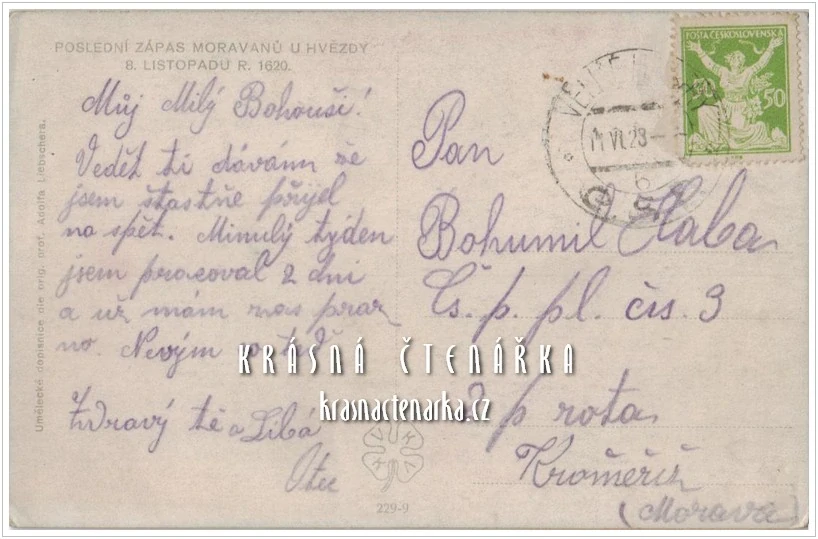 POSLEDNÍ ZÁPAS MORAVANŮ U HVĚZDY
8. LISTOPADU R. 1620.
Můj Milý Bohouši!
Vedět ti dávám že
jsem štastně přijel
na spět. Minulý tyden
jsem pracoval 2 dni
a už mám zas praz
no. Nevým
Zdravý tě a Libá
Otec
Umělecké dopisnice dle orig. prof. Adolfa Liebschera.
229-9
POŠTA ČESKOSLOVENSKÁ
50 50
VI.23
6
Pan
Bohumil
Čs. p. pl. čís. 3
p rota
Kroměříž
(Morava)
KRÁSNÁ ČTENÁŘKA
krasnactenarka.cz